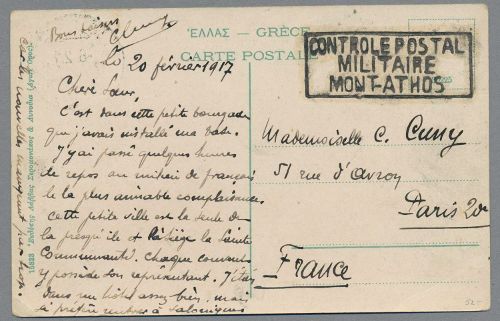 Bons baisers
ΈΛΛΑΣ — GRÈCE
CARTE POSTALE
CONTROLE POSTAL
MILITAIRE
MONT-ATHOS
le 20 février 1917
Chère Sœur,
C'est dans cette petite bourgade
que j'avais installé ma base.
J'y ai passé quelques heures
de repos au milieu de français
de la plus aimable complaisance.
Cette petite ville est la seule de
la presqu'île et le siège la Sainte
Communauté. Chaque couvent
y possède son représentant. J'étais
dans un hôtel assez bien, mais
je préfère rentrer à Salonique
car les nouvelles manquent par trop.
Mademoiselle C. Cuny
51 rue d'Avron
Paris 20e
France